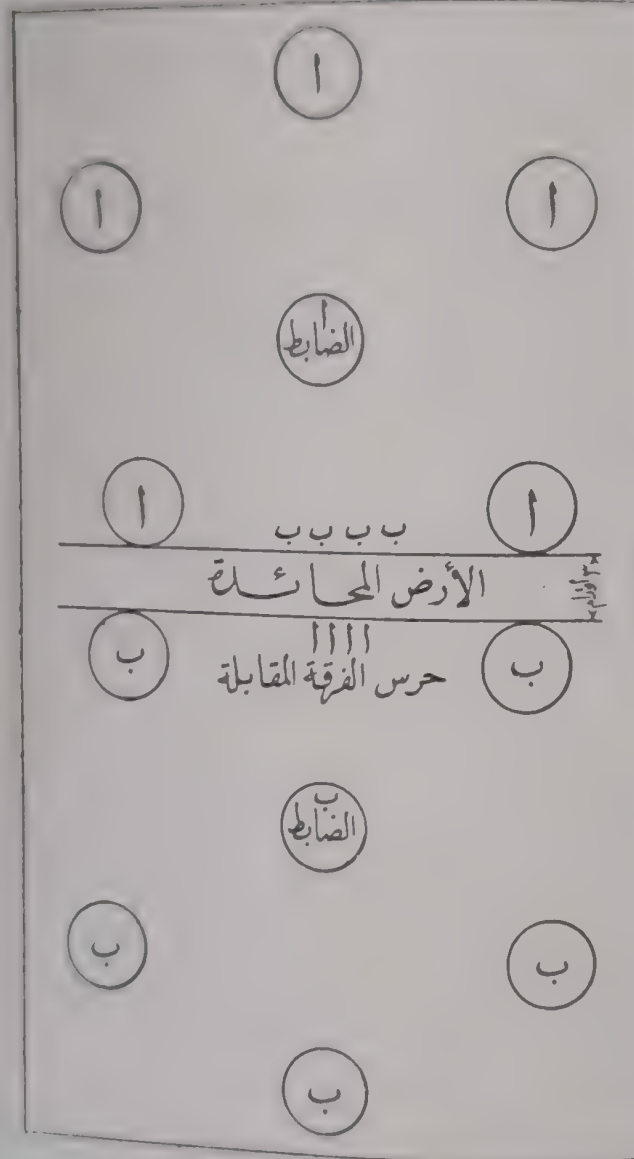 ا
ا
ا
ا
الضابط
ا
ا
ب ب ب ب
الأرض المحائدة
ا ا ا ا
ب
ب
حرس الفرقة المقابلة
ب
الضابط
ب
ب
ب